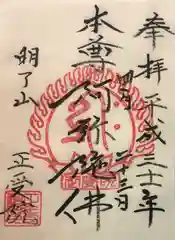 奉拝 平成三十一年
四月二十三日
本尊
阿弥陀佛
明了山
正受院